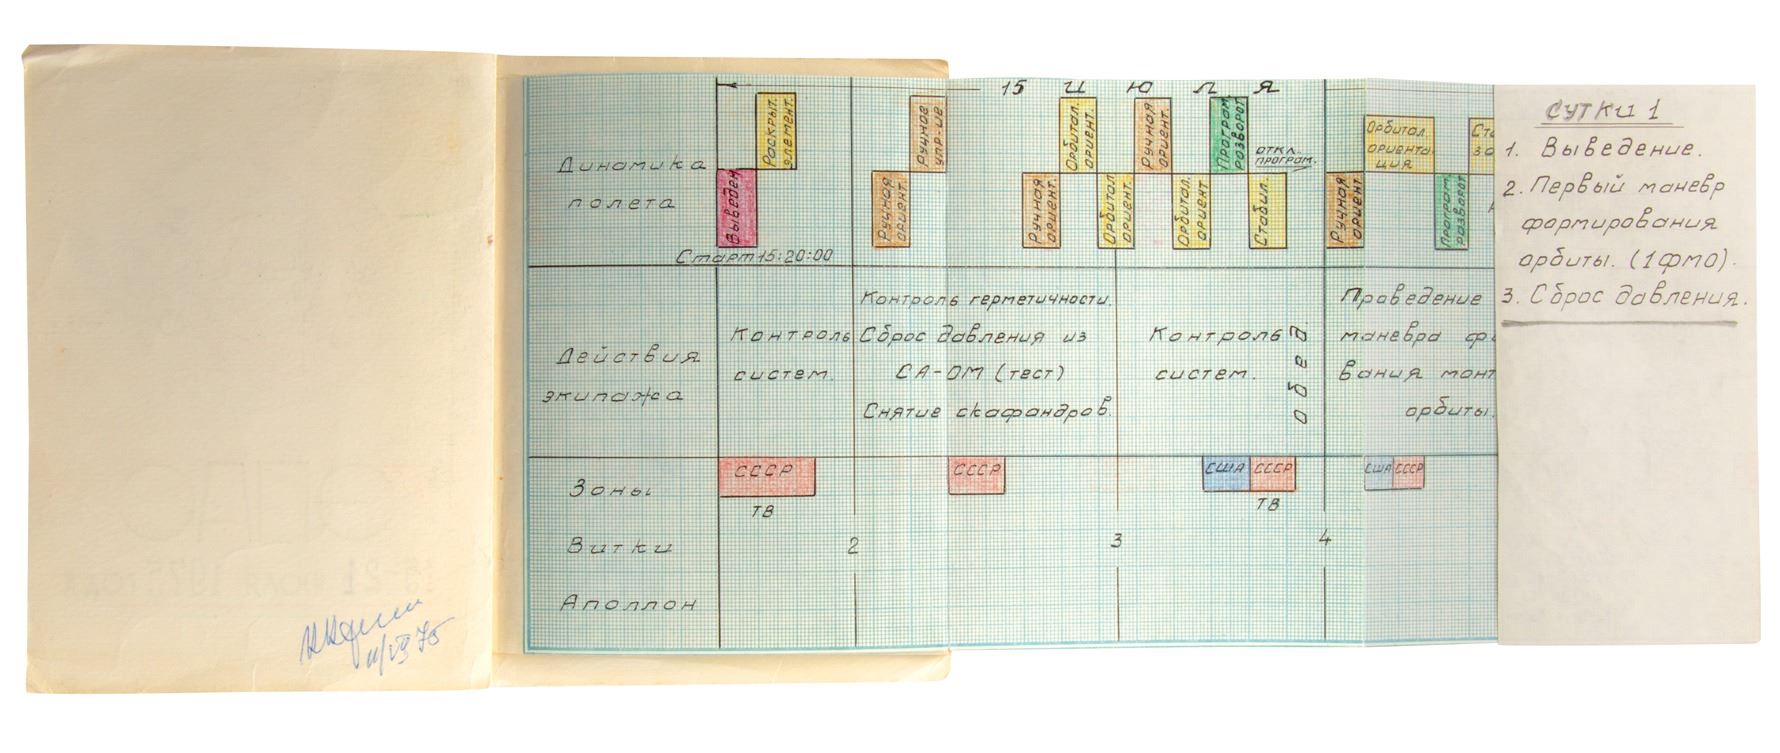 15 ИЮЛЯ
СУТКИ 1
1. Выведение.
2. Первый маневр
формирования
орбиты. (1ФМО).
3. Сброс давления.
Динамика
полета
Выведен
Раскрыт.
элемент.
Ручная
ориент.
Ручное
упр-ие
Ручная
ориент.
Орбитал.
ориент.
Орбитал.
ориент.
Ручная
ориент.
Орбитал.
ориент
Програм.
разворот
Стабил.
откл.
програм.
Ручная
ориент.
Орбитал.
ориента-
ция
Програм.
разворот
Старт 15:20:00
Действия
экипажа
Контроль
систем.
Контроль герметичности.
Сброс давления из
СА-ОМ (тест)
Снятие скафандров.
Контроль
систем.
обед
Проведение
маневра фо
вания монт
орбиты.
Зоны
СССР
ТВ
СССР
США
СССР
ТВ
США
СССР
Витки
2
3
4
Аполлон
15-21 июля 1975 года